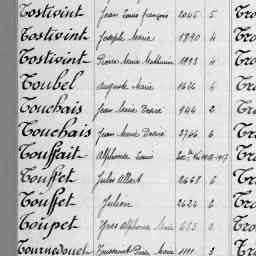 Tostivint Jean Louis François 2045 5 Tro
Tostivint Joseph Marie 1890 4 Tro
Tostivint Pierre Marie Mathurin 1993 4 Tro
Toubel Auguste Marie 1626 4 Tro
Touchais Jean Marie Désiré 944 2 Tro
Touchais Jean Marie Désiré 2766 6 Tro
Touffait Alphonse Louis Tro
Touffet Jules Albert 2468 6 Tro
Touffet Julien 2624 6 Tro
Toupet Yves Alphonse Marie 683 2 Tro
Tournedouet Toussaint Pierre Marie 1111 3 Tro